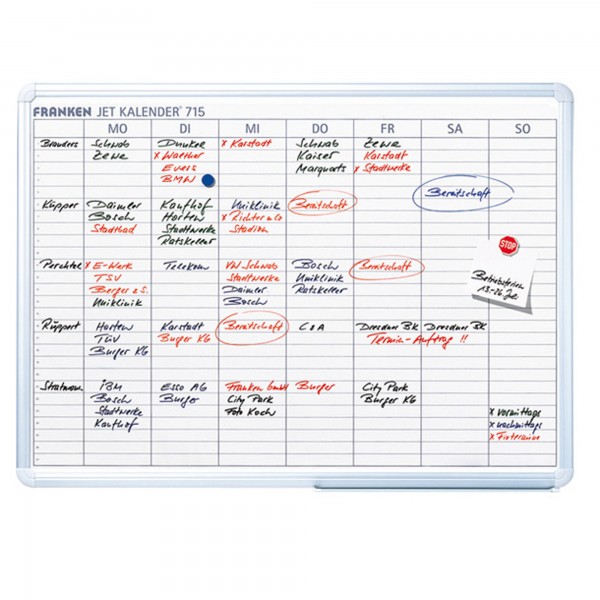 FRANKEN JET KALENDER® 715
MO DI MI DO FR SA SO
Branders Schwab Dunker x Karstadt Schwab Zewe
Zewe x Walther Kaiser Karstadt
Evers Marquarts x Stadtwerke
BMW
Bereitschaft
Küpper Daimler Kaufhof Uniklinik Bereitschaft
Bosch Horten x Richter & Co
Stadtbad Stadtwerke Stadion
Ratskeller
STOP
Perchtel x E-Werk Telekom VW Schwab Bosch Bereitschaft
TSV Stadtwerke Uniklinik
Berger & S. Daimler Ratskeller
Uniklinik Bosch
Betriebsferien
13.-26. Jul
Rüppert Horten Karstadt Bereitschaft C & A Dresdner BK Dresdner BK
TÜV Burger KG Termin-Auftrag !!
Burger KG
Stratmann IBM Esso AG Franken GmbH Burger City Park
Bosch Burger City Park Burger KG
Stadtwerke Foto Koch
Kaufhof
x vormittags
x nachmittags
x Fixtermine